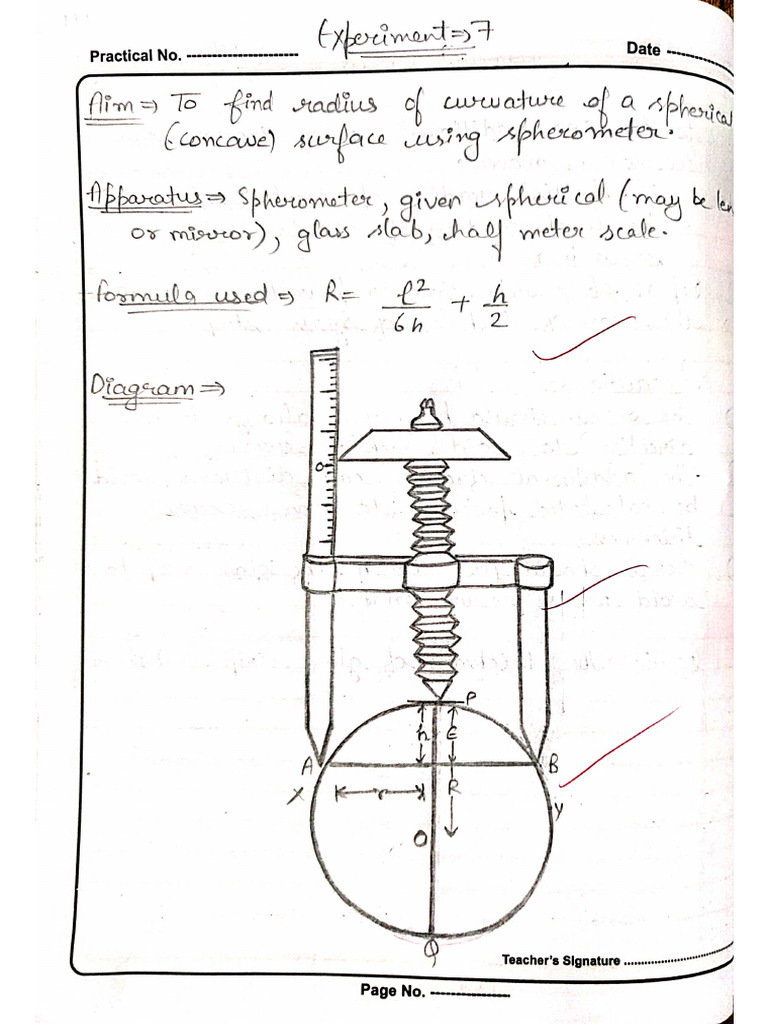 Experiment⇒7
Practical No. ---------------------- Date -----------
Aim⇒ To find radius of curvature of a spherical
(concave) surface using spherometer.
Apparatus⇒ Spherometer, given spherical (may be len
or mirror), glass slab, half meter scale.
Formula used⇒ R = l²/6h + h/2
Diagram⇒
0
P
h E
A B
X r R
Y
O
Q
Teacher's Signature ..........................
Page No. ----------------